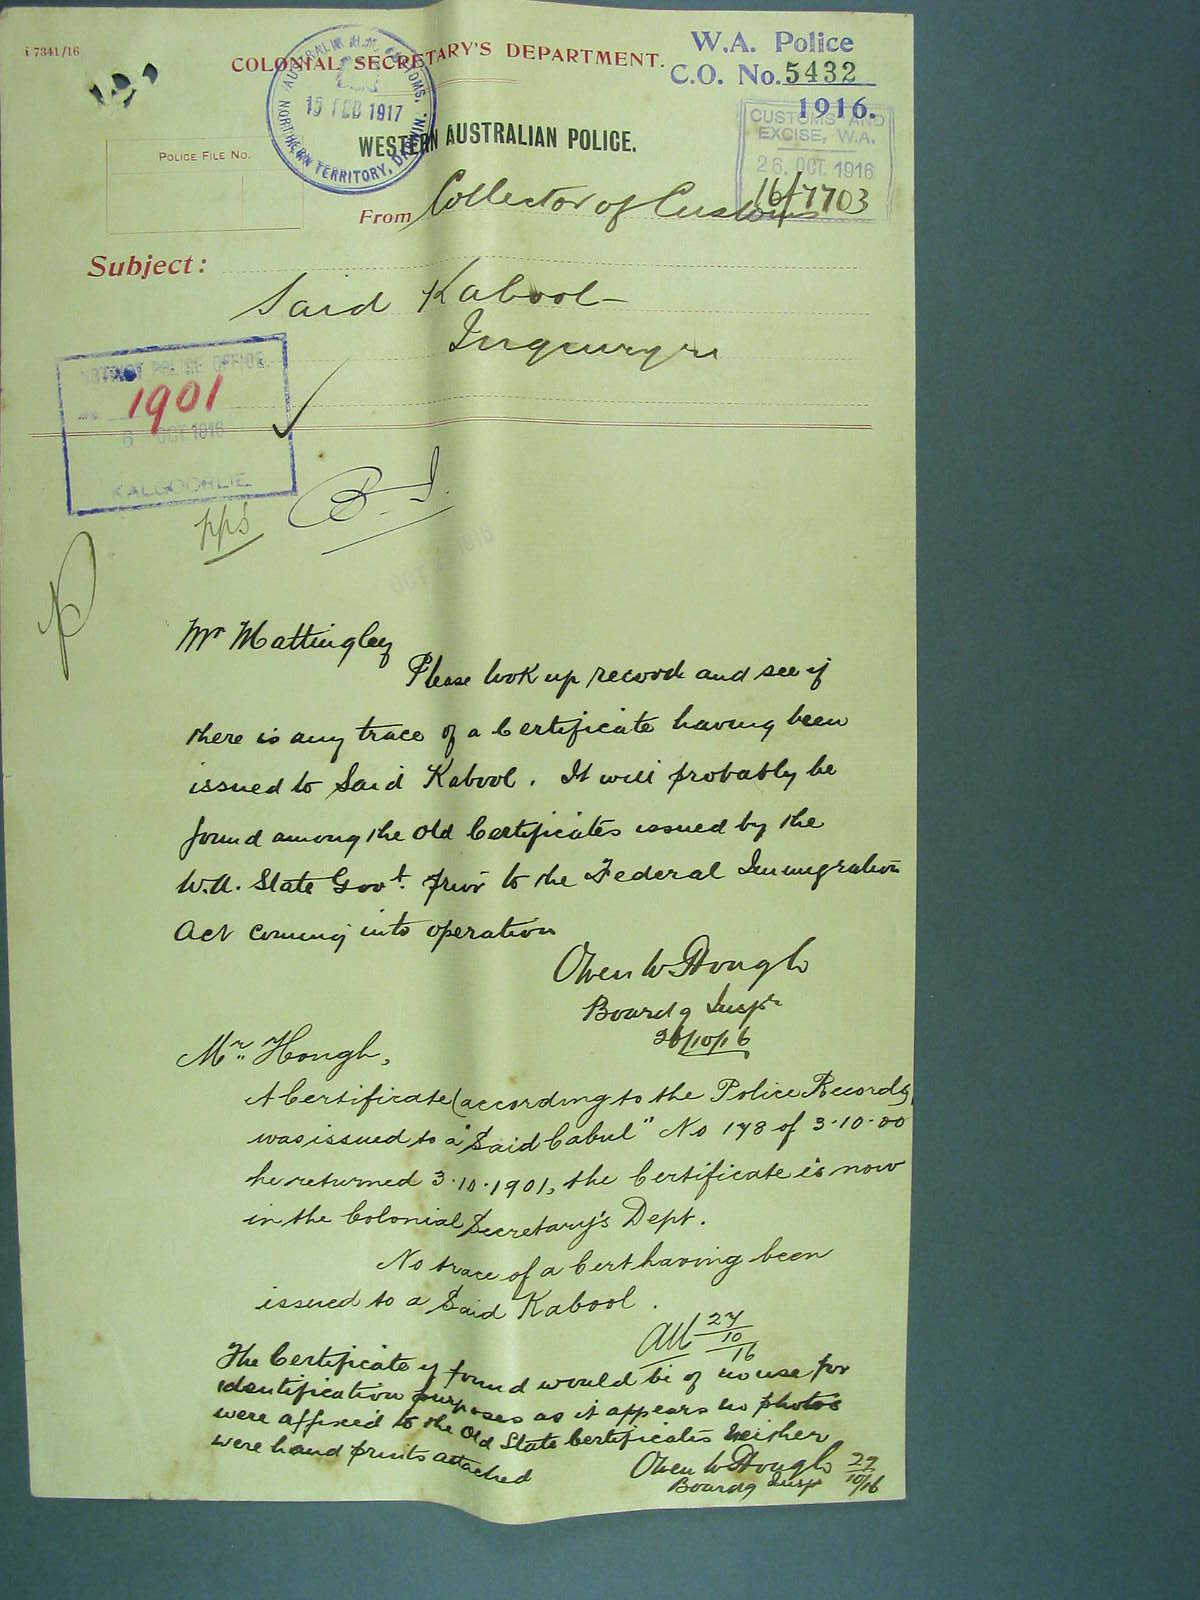 i 7341/16
COLONIAL SECRETARY'S DEPARTMENT.
W.A. Police
C.O. No. 5432
1916.
AUSTRALIA H.M. CUSTOMS.
15 FEB 1917
NORTHERN TERRITORY, DARWIN.
CUSTOMS AND
EXCISE, W.A.
26. OCT. 1916
16/7703
WESTERN AUSTRALIAN POLICE.
POLICE FILE No.
From Collector of Customs
Subject:
Said Kabool
Inquiry re
DISTRICT POLICE OFFICE.
1901
6 OCT 1916
KALGOORLIE
pps
B.I.
Mr Mattingley
Please look up records and see if
there is any trace of a Certificate having been
issued to Said Kabool. It will probably be
found among the old Certificates issued by the
W.A. State Govt. prior to the Federal Immigration
Act coming into operation
Owen W Hough
Boardg Inspr
26/10/16
Mr. Hough,
A Certificate (according to the Police Records)
was issued to a "Said Cabul" No 178 of 3.10.00
he returned 3.10.1901, the Certificate is now
in the Colonial Secretary's Dept.
No trace of a Cert having been
issued to a Said Kabool.
AM 27/10/16
The Certificate if found would be of no use for
identification purposes as it appears no photos
were affixed to the old State Certificates neither
were hand prints attached
Owen W Hough 27/10/16
Boardg Inspr